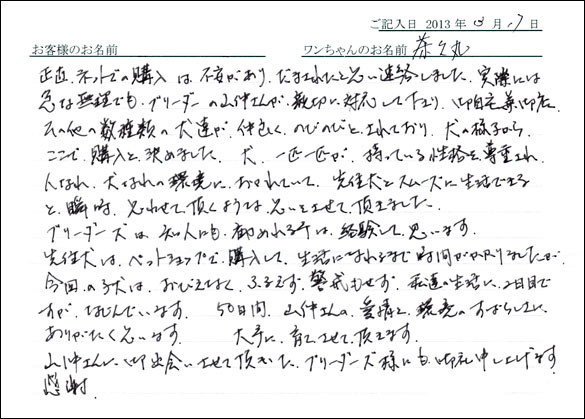 ご記入日 2013 年 3 月 17 日
お客様のお名前 ワンちゃんのお名前 茶々丸
正直、ネットでの購入は不安があり、だまされたと思い連絡しました。実際には
急な無理でも、ブリーダーの山仲さんが、親切に対応して下さり、御自宅兼御店
その他の数種類の犬達が、仲良く、のびのびとされており、犬の様子から
ここで、購入と決めました。犬、一匹一匹が、持っている性格を尊重され
人なれ、犬なれの環境に、おかれていて、先住犬とスムーズに生活できる
と、瞬時、思わせて頂くような思いをさせて頂きました。
ブリーダーズは、知人にも、勧めれる事は、経験して、思います。
先住犬は、ペットショップで、購入して、生活になれるまで時間がかかりましたが、
今回の子犬は、おびえなく、ふるえず、警戒もせず、私達の生活に、2日目で
すが、なじんでいます。 50日間、山仲さんの、愛情と、環境のすばらしさに
ありがたく思います。 大事に、育てさせて、頂きます。
山仲さんに、御出会いさせて頂いた、ブリーダーズ様にも、御礼申し上げます
感謝